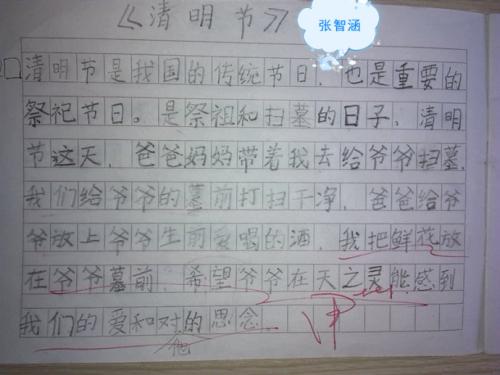 《清明节》
张智涵
清明节是我国的传统节日，也是重要的
祭祀节日。是祭祖和扫墓的日子。清明
节这天，爸爸妈妈带着我去给爷爷扫墓，
我们给爷爷的墓前打扫干净，爸爸给爷
爷放上爷爷生前爱喝的酒，我把鲜花放
在爷爷墓前，希望爷爷在天之灵能感到
我们的爱和对的思念
他